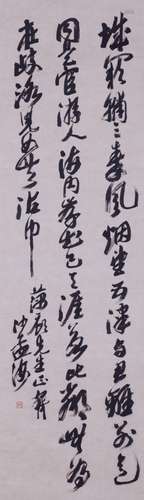 城闕輔三秦風烟望五津与君離别意
同是宦游人海内存知己天涯若比鄰無為
在岐路兒女共沾巾
先生正
沙孟海